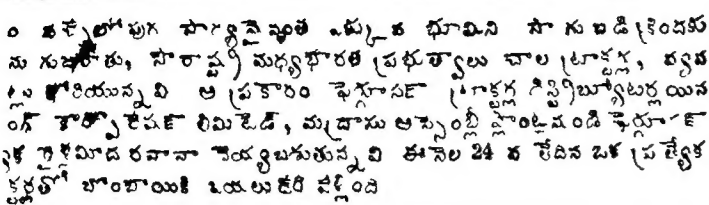 ౦ వత్సరలోపుగ సాధ్యమైనంత ఎక్కువ భూమిని సాగుబడిక్రిందకు
ను గుజరాతు, సౌరాష్ట్ర మధ్యభారత ప్రభుత్వాలు చాల ట్రాక్టర్ల, వ్యవ
ల్లు కోరియున్నవి ఆ ప్రకారం ఫెర్గూసన్ ట్రాక్టర్ల డిస్ట్రిబ్యూటర్ల యిన
ంగ్ కార్పొరేషన్ లిమిటెడ్, మద్రాసు అస్సెంబ్లీ ప్లాంటునుండి ఫెర్గూసన్
క రైళ్లమీద రవానా చెయ్యబడుతున్నవి ఈ నెల 24 వ తేదిన ఒక ప్రత్యేక
క్టర్లతో బొంబాయికి బయలుదేరి వెళ్లింది